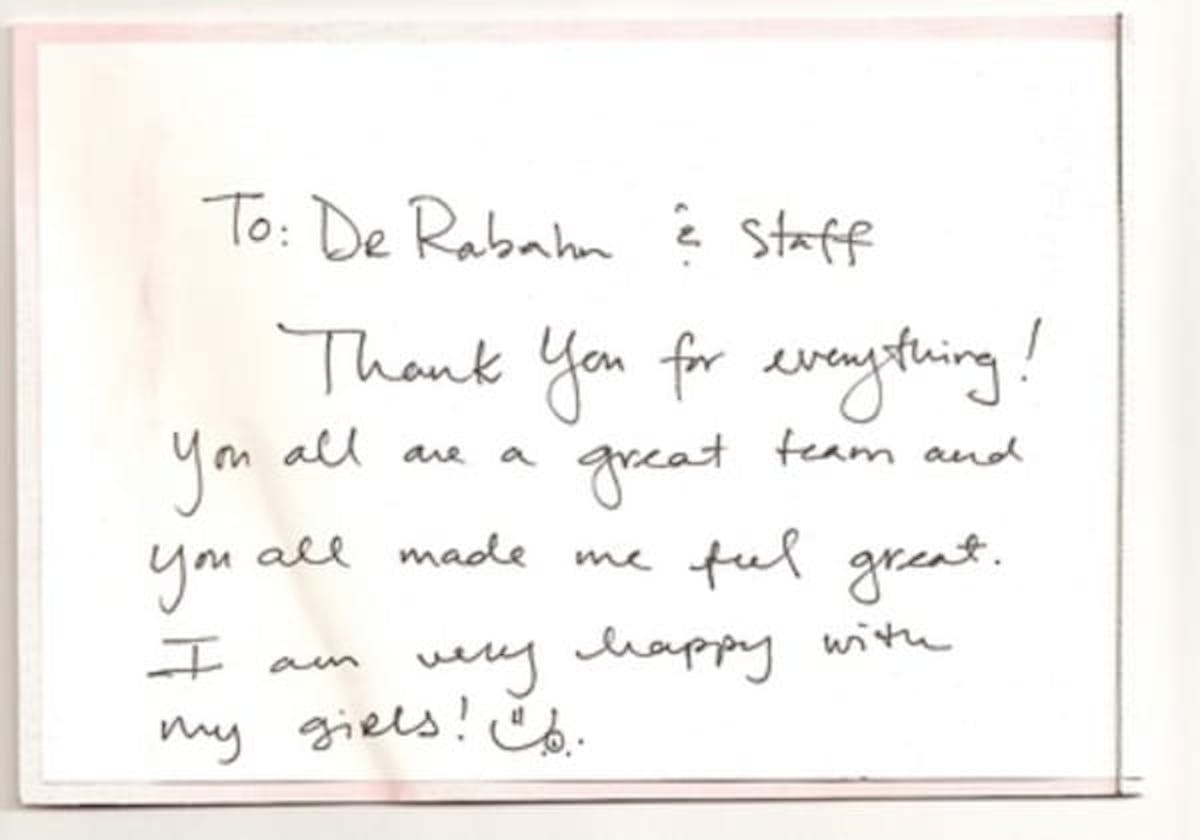 To: De Rabahn & Staff
Thank You for everything!
You all are a great team and
you all made me feel great.
I am very happy with
my girls!